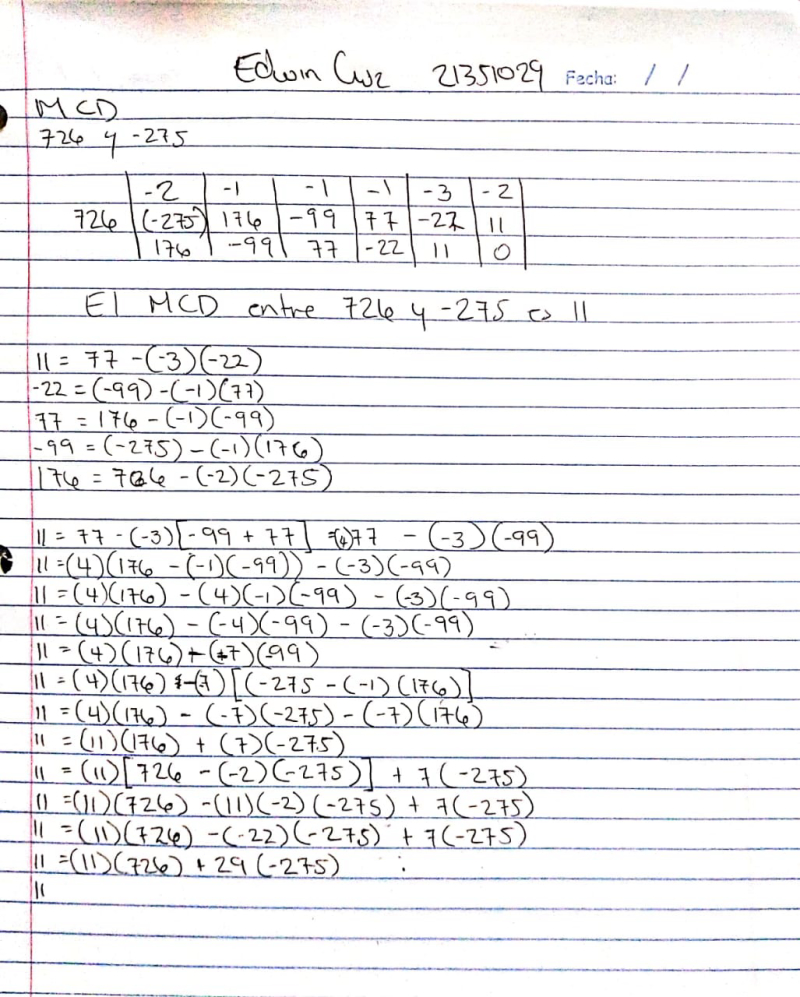 Edwin Cruz 21351029 Fecha: / /
MCD
726 y -275
-2 -1 -1 -1 -3 -2
726 (-275) 176 -99 77 -22 11
176 -99 77 -22 11 0
El MCD entre 726 y -275 es 11
11 = 77 - (-3)(-22)
-22 = (-99) - (-1)(77)
77 = 176 - (-1)(-99)
-99 = (-275) - (-1)(176)
176 = 726 - (-2)(-275)
11 = 77 - (-3)[-99 + 77] = (4)77 - (-3)(-99)
11 = (4)(176 - (-1)(-99)) - (-3)(-99)
11 = (4)(176) - (4)(-1)(-99) - (-3)(-99)
11 = (4)(176) - (-4)(-99) - (-3)(-99)
11 = (4)(176) + (+7)(-99)
11 = (4)(176) - (-7)[(-275 - (-1)(176)]
11 = (4)(176) - (-7)(-275) - (-7)(176)
11 = (11)(176) + (7)(-275)
11 = (11)[726 - (-2)(-275)] + 7(-275)
11 = (11)(726) - (11)(-2)(-275) + 7(-275)
11 = (11)(726) - (-22)(-275) + 7(-275)
11 = (11)(726) + 29(-275)
11